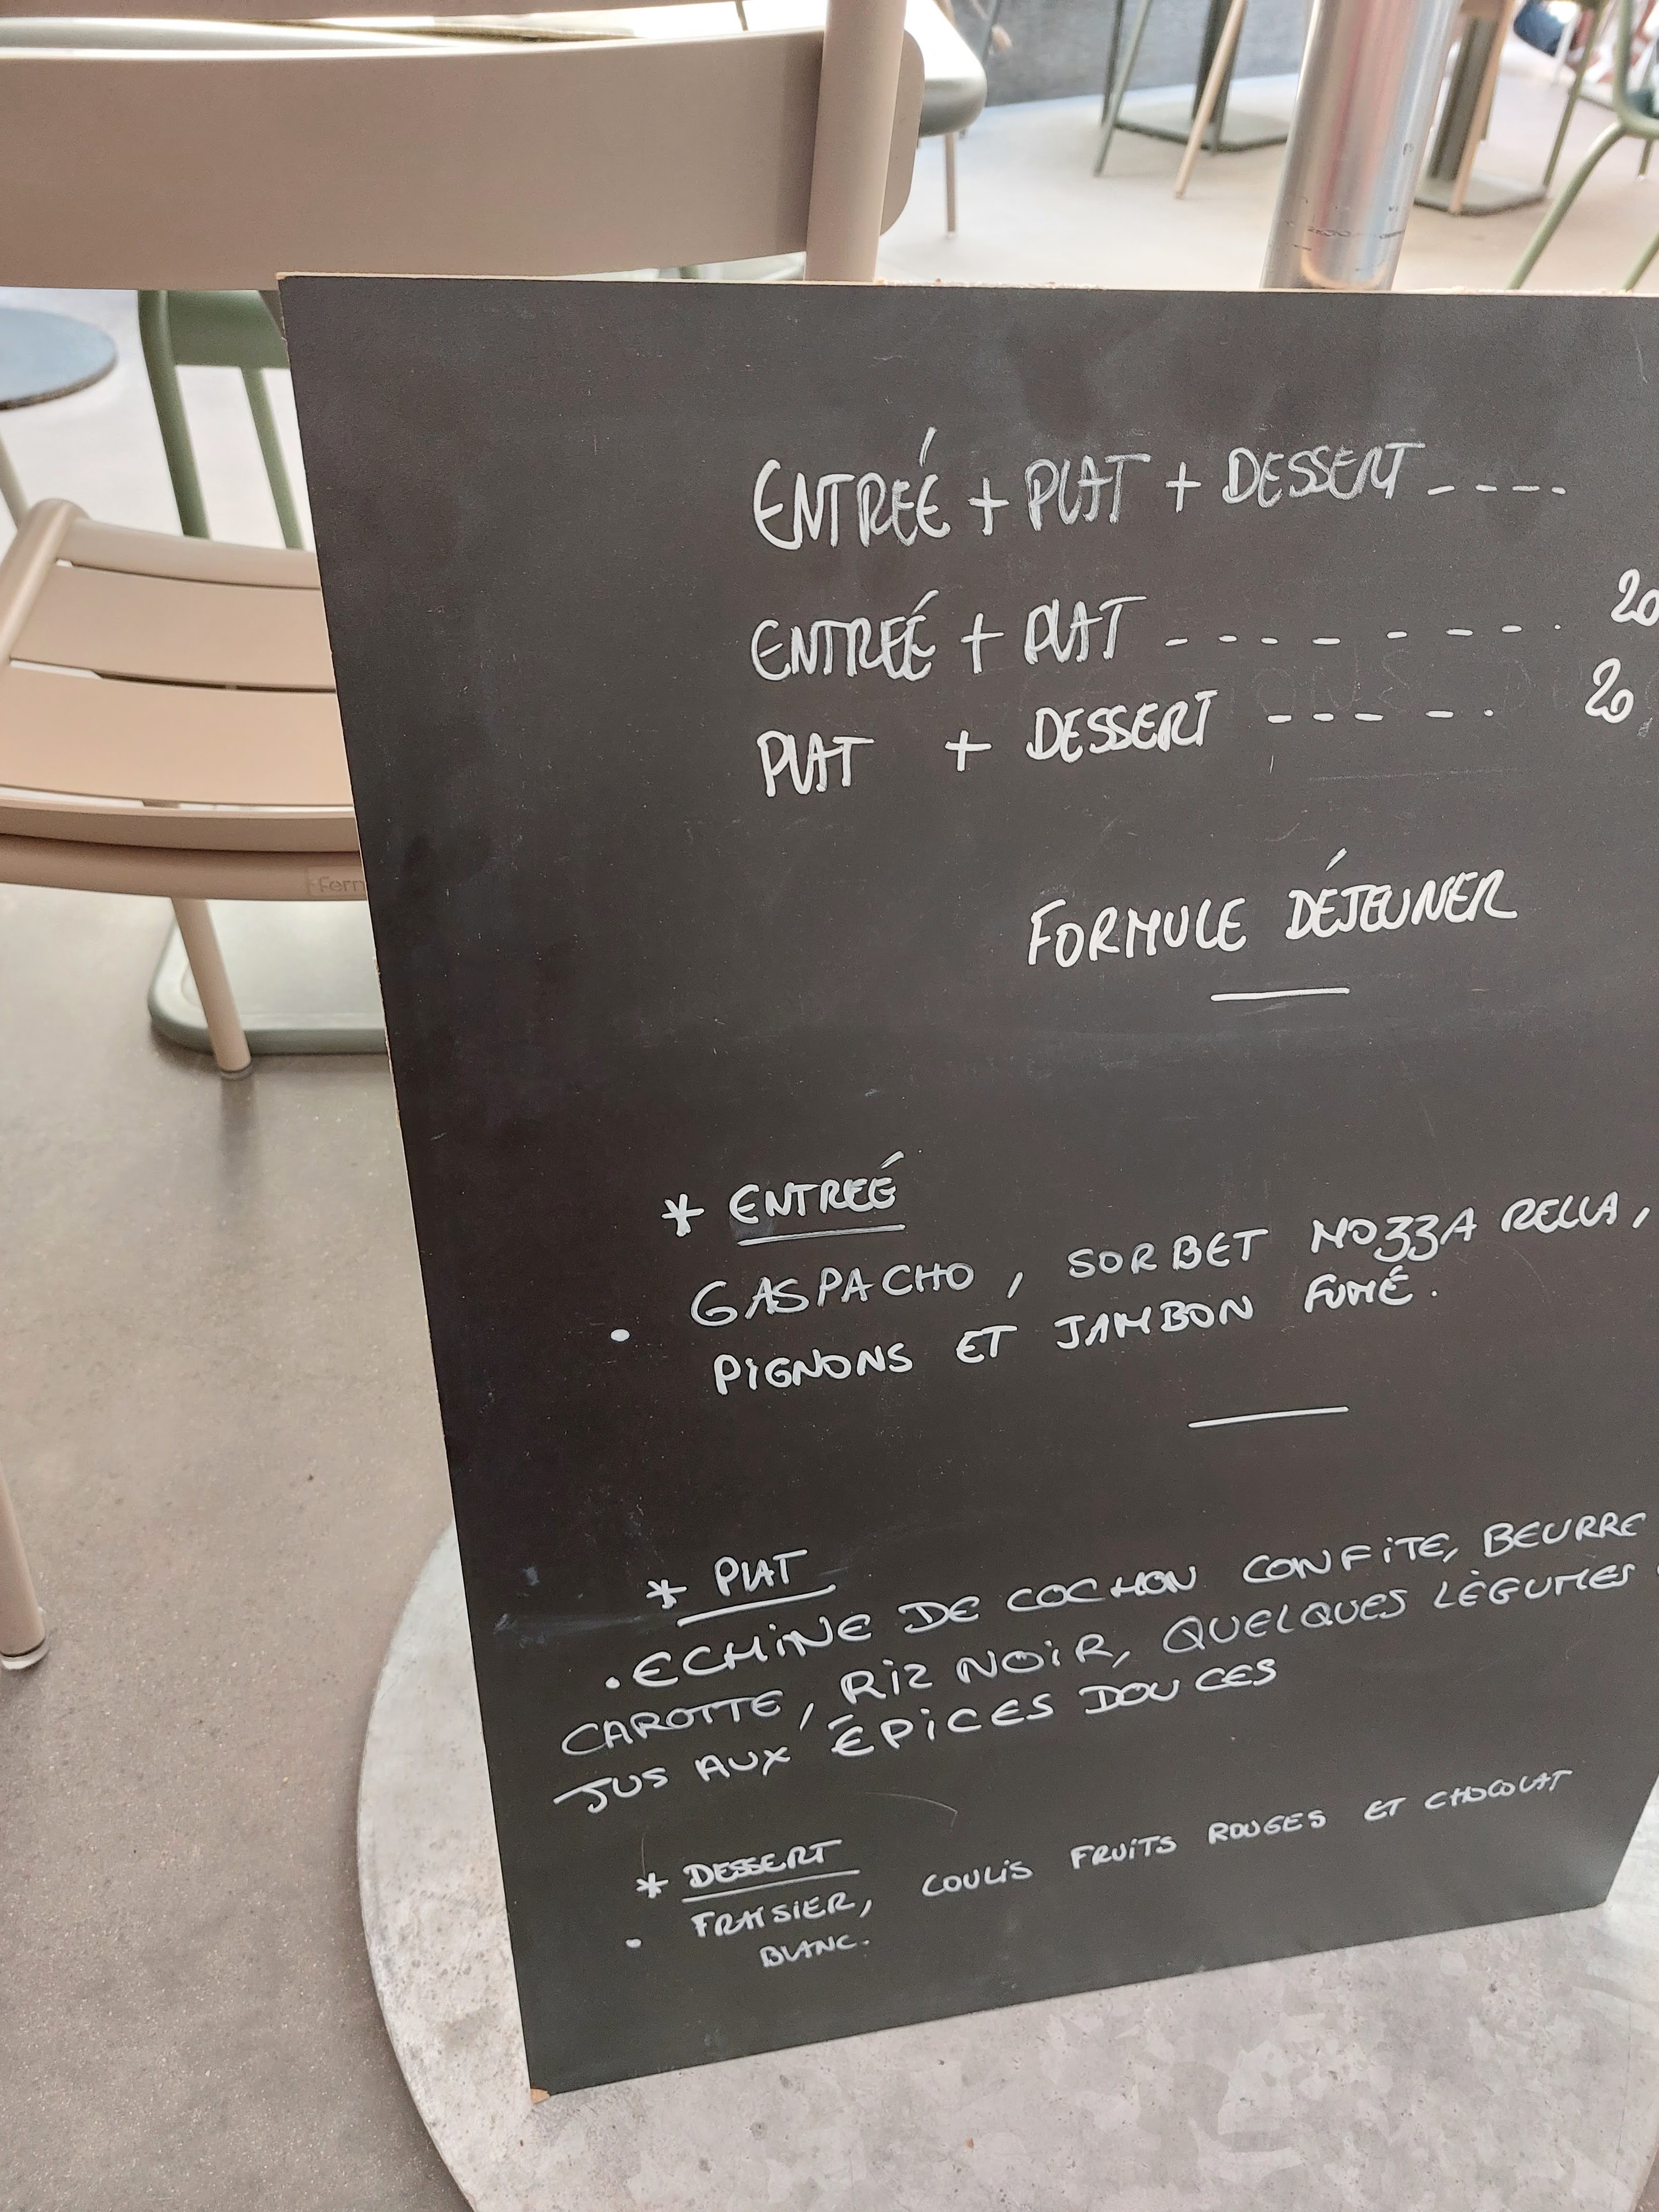 ENTREÉ + PLAT + DESSERT ----
ENTREÉ + PLAT --------. 20
PLAT + DESSERT -----. 20
FORMULE DÉJEUNER
* ENTREÉ
. GASPACHO, SORBET MOZZARELLA,
PIGNONS ET JAMBON FUMÉ.
* PLAT
. ECHINE DE COCHON CONFITE, BEURRE
CAROTTE, RIZ NOIR, QUELQUES LÈGUMES
JUS AUX ÉPICES DOUCES
* DESSERT
. FRAISIER, COULIS FRUITS ROUGES ET CHOCOLAT
BLANC.